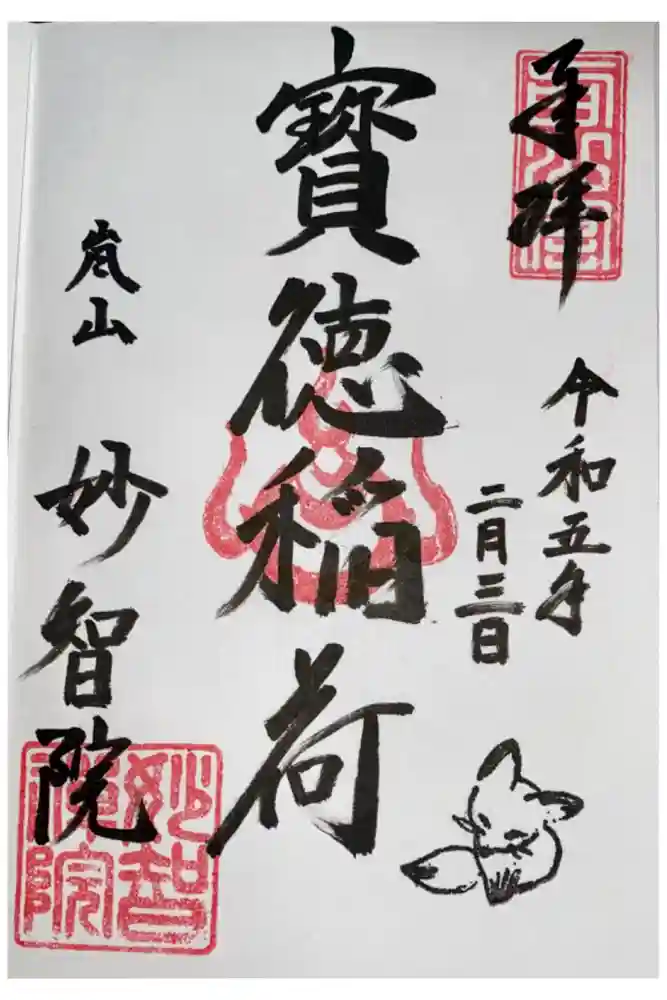 奉拝
令和五年
二月三日
寳徳稲荷
嵐山
妙智院
妙智
禅院